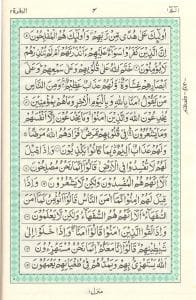 البقرة ٢
٣
الٓمّٓ ١
اُولٰٓئِكَ عَلٰى هُدًى مِّنْ رَّبِّهِمْ وَاُولٰٓئِكَ هُمُ الْمُفْلِحُوْنَ
اِنَّ الَّذِيْنَ كَفَرُوْا سَوَآءٌ عَلَيْهِمْ ءَاَنْذَرْتَهُمْ اَمْ لَمْ تُنْذِرْهُمْ
لَا يُؤْمِنُوْنَ خَتَمَ اللّٰهُ عَلٰى قُلُوْبِهِمْ وَعَلٰى سَمْعِهِمْ وَعَلٰٓى
اَبْصَارِهِمْ غِشَاوَةٌ وَّلَهُمْ عَذَابٌ عَظِيْمٌ وَمِنَ النَّاسِ
مَنْ يَّقُوْلُ اٰمَنَّا بِاللّٰهِ وَبِالْيَوْمِ الْاٰخِرِ وَمَا هُمْ بِمُؤْمِنِيْنَ
يُخٰدِعُوْنَ اللّٰهَ وَالَّذِيْنَ اٰمَنُوْا وَمَا يَخْدَعُوْنَ
اِلَّآ اَنْفُسَهُمْ وَمَا يَشْعُرُوْنَ فِيْ قُلُوْبِهِمْ مَّرَضٌ فَزَادَهُمُ اللّٰهُ مَرَضًا
وَلَهُمْ عَذَابٌ اَلِيْمٌ بِمَا كَانُوْا يَكْذِبُوْنَ وَاِذَا قِيْلَ
لَهُمْ لَا تُفْسِدُوْا فِي الْاَرْضِ قَالُوْٓا اِنَّمَا نَحْنُ مُصْلِحُوْنَ
اَلَآ اِنَّهُمْ هُمُ الْمُفْسِدُوْنَ وَلٰكِنْ لَّا يَشْعُرُوْنَ وَاِذَا
قِيْلَ لَهُمْ اٰمِنُوْا كَمَآ اٰمَنَ النَّاسُ قَالُوْٓا اَنُؤْمِنُ كَمَآ اٰمَنَ
السُّفَهَآءُ اَلَآ اِنَّهُمْ هُمُ السُّفَهَآءُ وَلٰكِنْ لَّا يَعْلَمُوْنَ
وَاِذَا لَقُوا الَّذِيْنَ اٰمَنُوْا قَالُوْٓا اٰمَنَّا وَاِذَا خَلَوْا اِلٰى
شَيٰطِيْنِهِمْ قَالُوْٓا اِنَّا مَعَكُمْ اِنَّمَا نَحْنُ مُسْتَهْزِءُوْنَ
اَللّٰهُ يَسْتَهْزِئُ بِهِمْ وَيَمُدُّهُمْ فِيْ طُغْيَانِهِمْ يَعْمَهُوْنَ
منزل ١